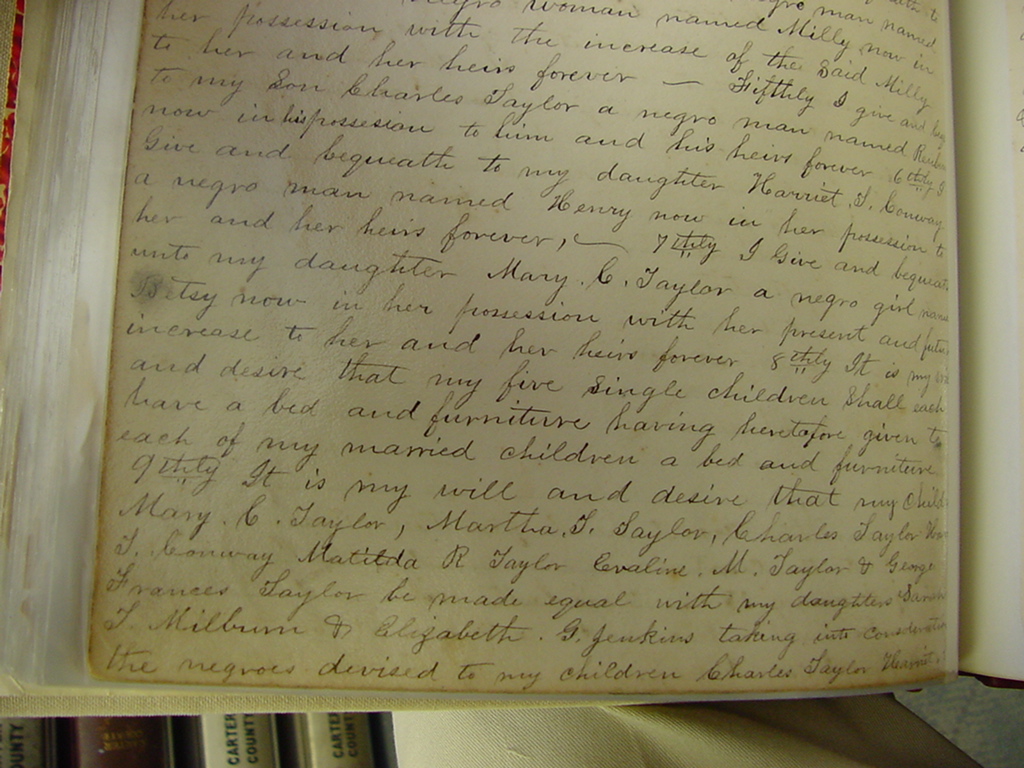 negro man named
negro woman named Milly now in
her possession with the increase of the Said Milly
to her and her heirs forever — Fifthly I give and
to my Son Charles Taylor a negro man named Reuben
now in his possesion to him and his heirs forever 6thly I
Give and bequeath to my daughter Harriet. T. Conway
a negro man named Henry now in her possession to
her and her heirs forever, — 7thly I Give and bequeath
unto my daughter Mary. C. Taylor a negro girl named
Betsy now in her possession with her present and future
increase to her and her heirs forever 8thly It is my will
and desire that my five Single children Shall each
have a bed and furniture having heretofore given to
each of my married children a bed and furniture
9thly It is my will and desire that my Child
Mary. C. Taylor, Martha. T. Taylor, Charles Taylor
T. Conway Matilda R Taylor Evaline. M. Taylor & George
Frances Taylor be made equal with my daughters Sarah
T. Milburn & Elizabeth. G. Jenkins taking into consideration
the negroes devised to my children Charles Taylor Harriet
CARTER COUNTY
CARTER COUNTY